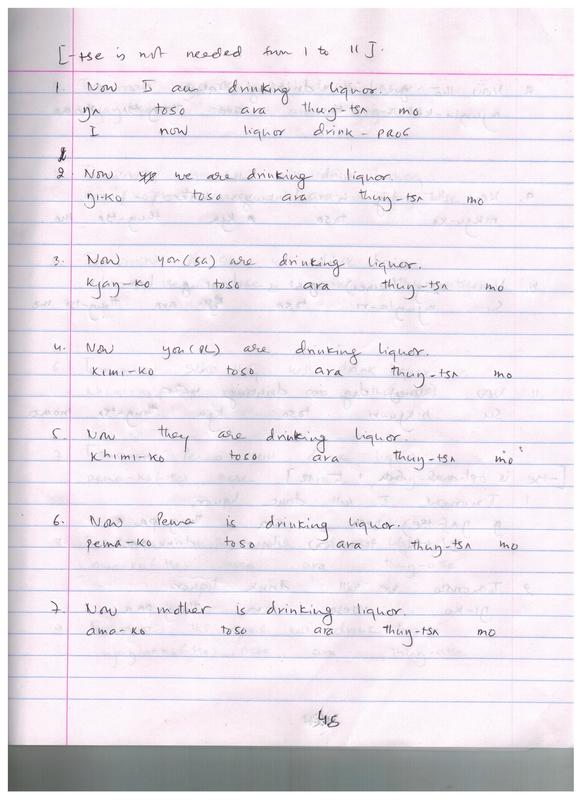 [-tse is not needed from 1 to 11].
1. Now I am drinking liquor.
ŋʌ toso ara thuŋ-tsʌ mo
I now liquor drink-PROG
2. Now we are drinking liquor.
ŋi-ko toso ara thuŋ-tsʌ mo
3. Now you(SG) are drinking liquor.
kjaŋ-ko toso ara thuŋ-tsʌ mo
4. Now you(PL) are drinking liquor.
kimi-ko toso ara thuŋ-tsʌ mo
5. Now they are drinking liquor.
khimi-ko toso ara thuŋ-tsʌ mo
6. Now Pema is drinking liquor.
pema-ko toso ara thuŋ-tsʌ mo
7. Now mother is drinking liquor.
ama-ko toso ara thuŋ-tsʌ mo
45